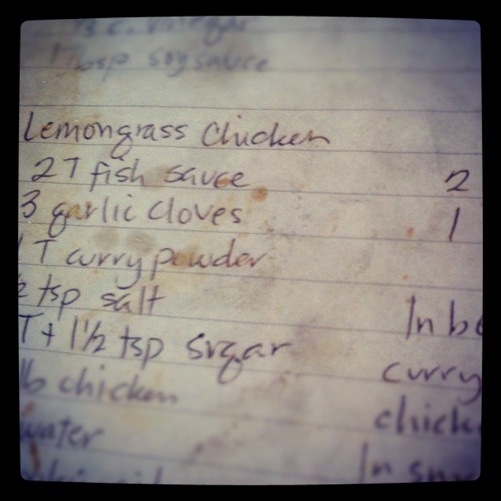 vinegar
1 Tbsp soy sauce
Lemongrass Chicken
2 T fish sauce
3 garlic cloves
1 T curry powder
2 tsp salt
T + 1 1/2 tsp sugar
lb chicken
water
2
1
In be
curry
chick
In sm